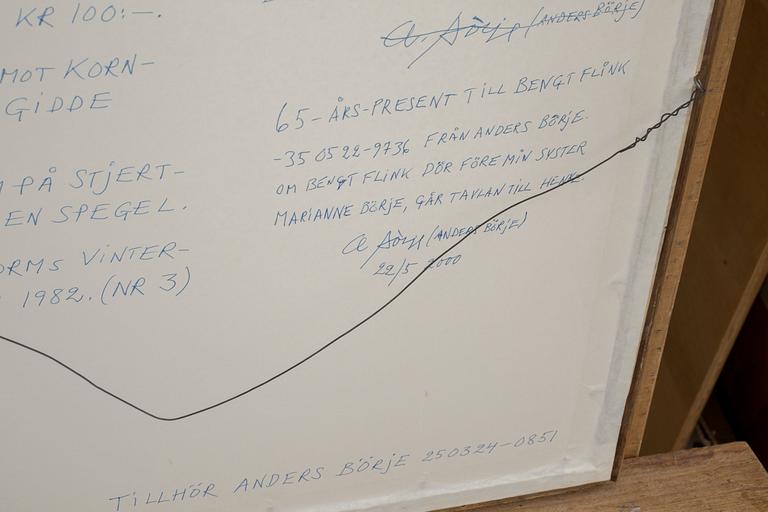 KR 100:-.
MOT KORN-
GIDDE
PÅ STJERT-
EN SPEGEL.
ORMS VINTER-
1982. (NR 3)
A Börje (ANDERS BÖRJE)
65-ÅRS-PRESENT TILL BENGT FLINK
-35 05 22-9736 FRÅN ANDERS BÖRJE.
OM BENGT FLINK DÖR FÖRE MIN SYSTER
MARIANNE BÖRJE, GÅR TAVLAN TILL HENNE.
A Börje (ANDERS BÖRJE)
22/5 2000
TILLHÖR ANDERS BÖRJE 250324-0851